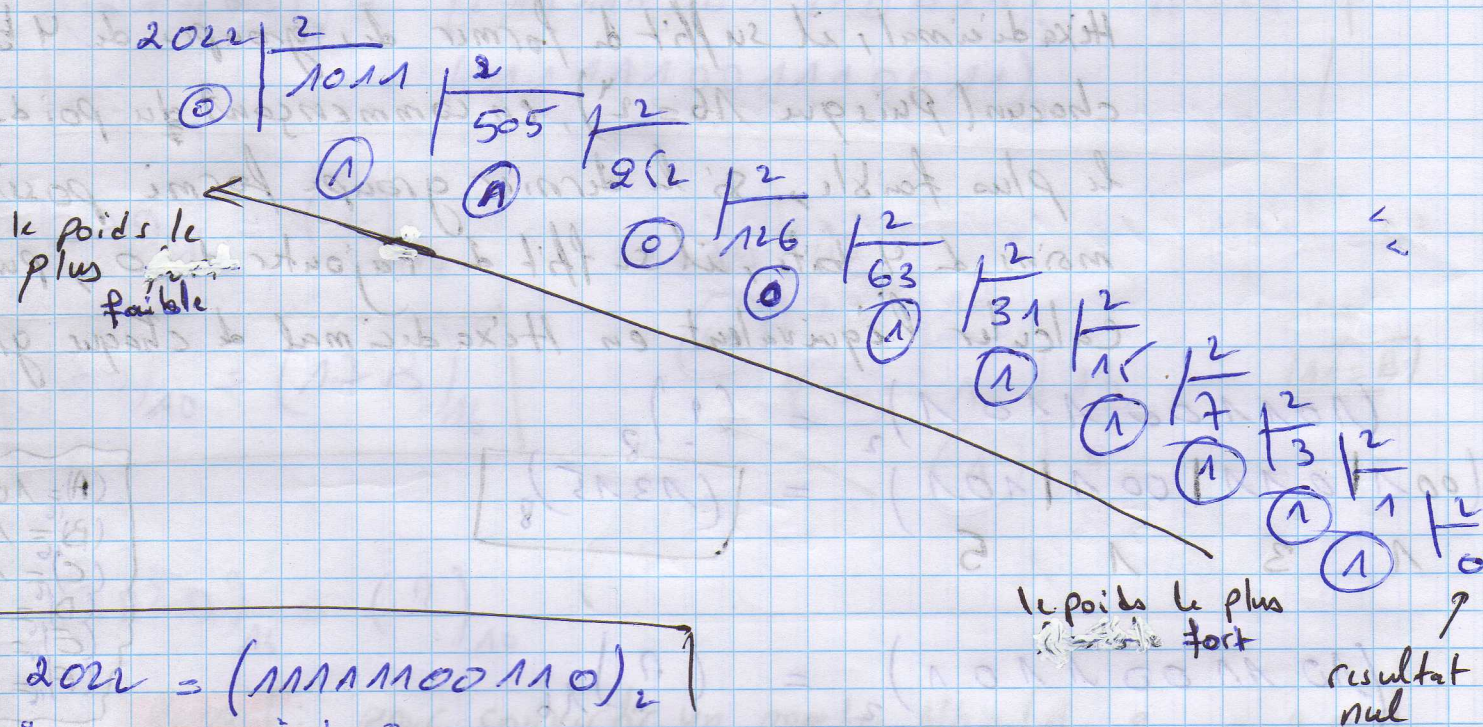 2022 | 2
0 1011 | 2
1 505 | 2
1 252 | 2
0 126 | 2
0 63 | 2
1 31 | 2
1 15 | 2
1 7 | 2
1 3 | 2
1 1 | 2
1 0
le poids le
plus
faible
le poids le plus
fort
resultat
nul
2022 = (11111100110)₂